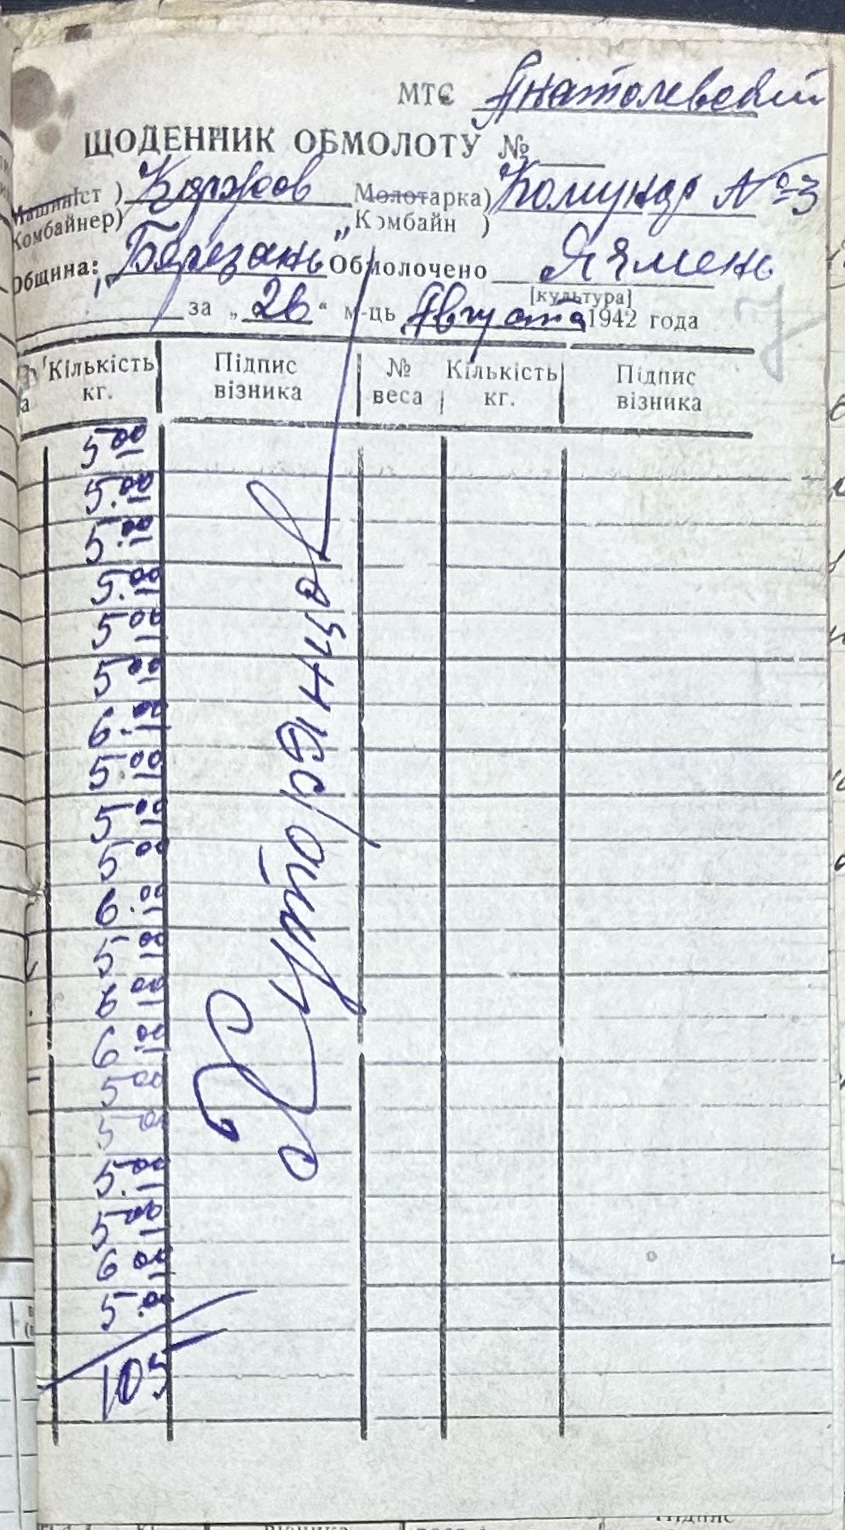 МТС Анатолевский
ЩОДЕННИК ОБМОЛОТУ №
Машиніст ) Коржов Молотарка) Комунар №3
Комбайнер) „Комбайн )
Община: „Березань Обмолочено Ячмень
[культура]
за „26“ м-ць Августа 1942 года
Кількість кг. Підпис візника № веса Кількість кг. Підпис візника
5.00
5.00
5.00
5.00
5.00
5.00
6.00
5.00
5.00
5.00
6.00
5.00
6.00
6.00
5.00
5.00
5.00
5.00
6.00
5.00
105